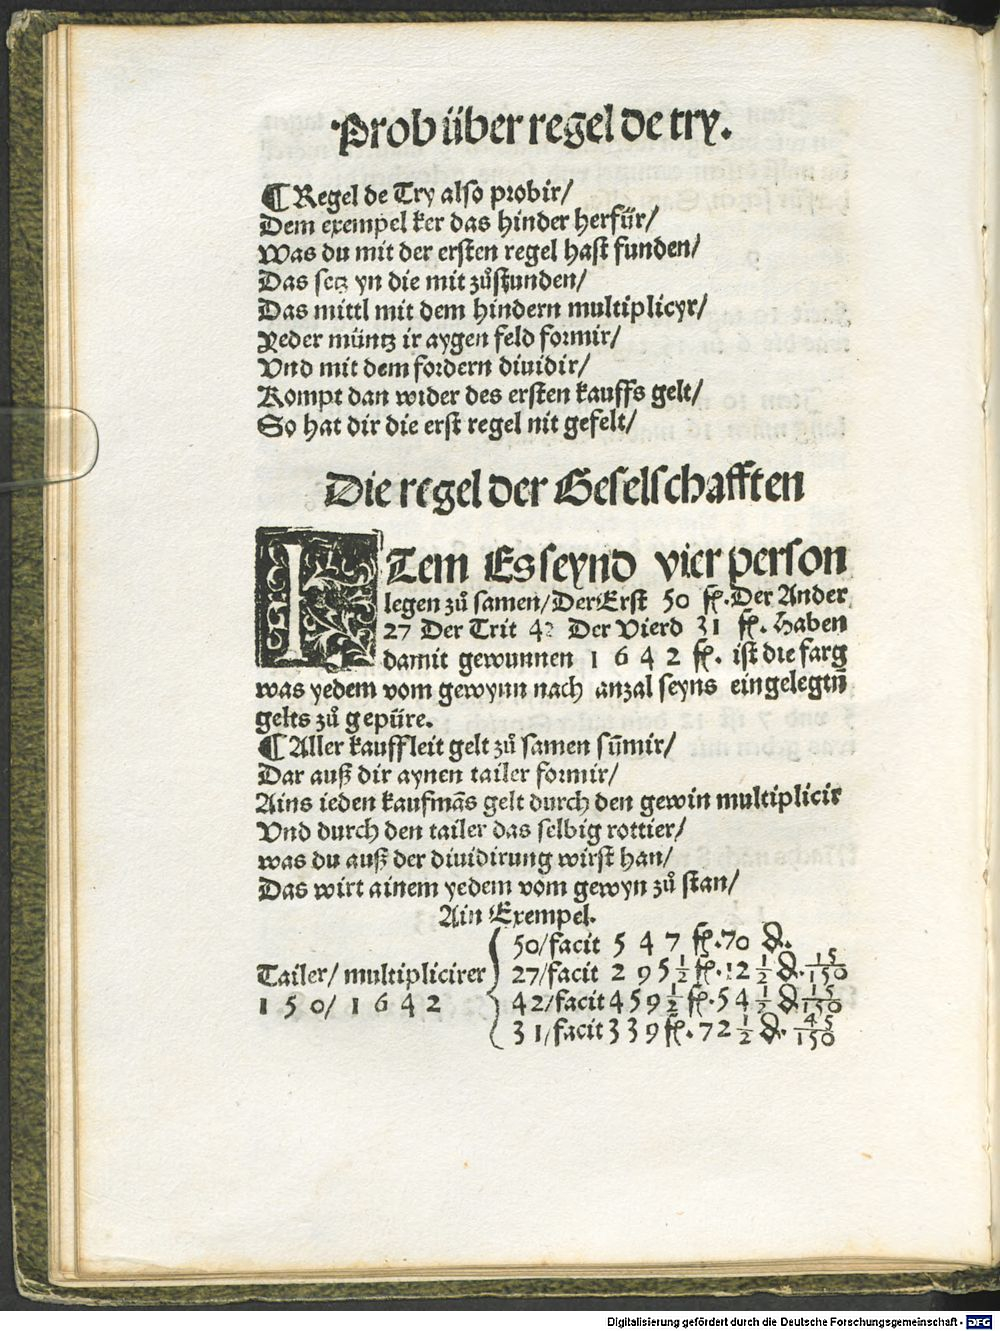 Prob über regel de try.
¶ Regel de Try also probir/
Dem exempel ker das hinder herfür/
Was du mit der ersten regel hast funden/
Das setz yn die mit zůstunden/
Das mittl mit dem hindern multiplicyr/
Yeder müntz ir aygen feld formir/
Vnd mit dem fordern diuidir/
Kompt dan wider des ersten kauffs gelt/
So hat dir die erst regel nit gefelt/
Die regel der Geselschafften
ITem Es seynd vier person
legen zů samen/Der Erst 50 fl. Der Ander
27 Der Trit 42 Der Vierd 31 fl. Haben
damit gewunnen 1 6 4 2 fl. ist die farg
was yedem vom gewynn nach anzal seyns eingelegtn̄
gelts zů gepüre.
¶ Aller kauffleit gelt zů samen sum̄ir/
Dar auß dir aynen tailer formir/
Ains ieden kaufmās gelt durch den gewin multiplicir
Vnd durch den tailer das selbig rottier/
was du auß der diuidirung wirst han/
Das wirt ainem yedem vom gewyn zů stan/
Ain Exempel.
50/facit 5 4 7 fl. 70 ₰.
Tailer/ multiplicirer 27/facit 2 9 5 1/2 fl. 12 1/2 ₰. 15/150
1 5 0/ 1 6 4 2 42/facit 4 5 9 1/2 fl. 5 4 1/2 ₰ 15/150
31/facit 3 3 9 fl. 72 1/2 ₰. 45/150
Digitalisierung gefördert durch die Deutsche Forschungsgemeinschaft - DFG